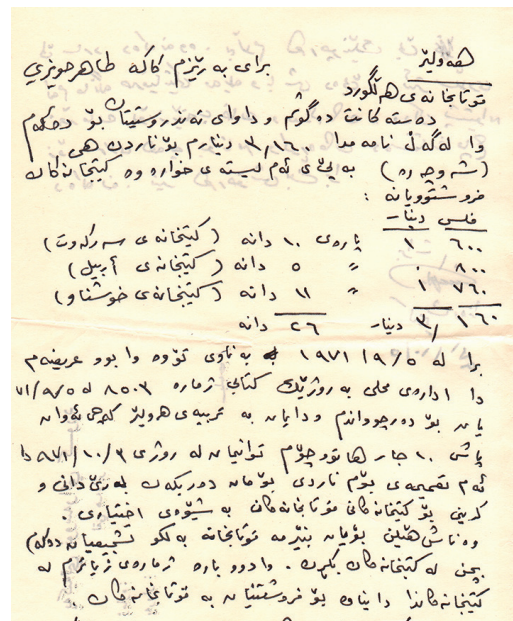 هەولێر
برای بەڕێزم کاکە طاهر حویزي
قوتابخانەی هەڵگورد
دەستەکانت دەگوشم و داوای تەندروستیتان بۆ دەکەم
وا لەگەڵ نامەمدا ٣/١٦٠ دینارم بۆ ناردن هی
(شەوچرە) بەپێی ئەم لیستەی خوارەوە کتێبخانەکان
فرۆشتوویانە :
فلس دینار
٦٠٠ ١ پارەی ١٠ دانە (کتێبخانەی سەرکەوت)
٨٠٠ ٠ " ٥ دانە (کتێبخانەی أربیل)
٧٦٠ ٠ " ١١ دانە (کتێبخانەی خۆشناو)
١٦٠ /٣ دینار ٢٦ دانە
برا لە ١٩٧١/٩/٥ بە ناوی تۆوە وابوو عریضەم
دا ادارەی محلی بە ڕۆژێک کتابی ژمارە ٨٥٠٣ لە ٧١/٩/٥
یان بۆ دەرچواندم و دایان بە تربیەی هەولێر کەچی ئەوان
پاش ١٠ جار هاتووچۆم توانیان لە ڕۆژی ٩٧١/١٠/٣ دا
ئەم تعمیمەی بۆم ناردی بۆمان دەربکەن لە ڕێ دانی و
کڕینی بۆ کتێبخانەکانی قوتابخانەکان بە شێوەی اختیاری .
وەناش هێڵن بۆیان بنێرمە قوتابخانە بەڵکو تشجیعیان دەکەم
بچن لە کتێبخانەکان بکڕن . وا دووبارە ژمارەی زیاترم لە
کتێبخانەکاندا داناوە بۆ فرۆشتنیان بە قوتابخانەکان .